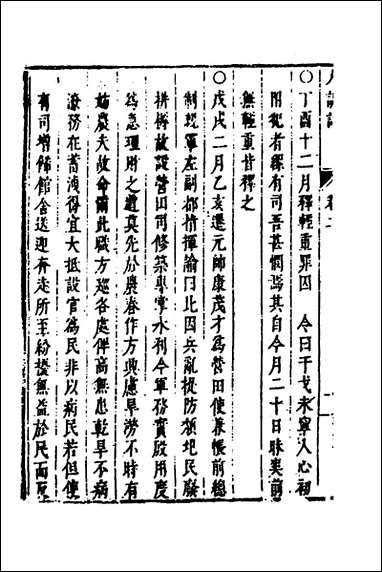 卷二
○丁酉十二月釋輕重罪囚　令曰干戈未寧人心初
附犯者繫有司吾甚憫焉其自今月二十日昧爽前
無輕重皆釋之
○戊戌二月乙亥遷元帥康茂才為營田使兼帳前總
制親軍左副都指揮諭曰比因兵亂隄防頹圯民廢
耕耨故設營田司修築專掌水利今軍務實殷用度
為急理財之道莫先於農春作方興慮旱澇不時有
妨農夫故命爾此職方巡各處俾高無患乾旱不病
潦務在蓄洩得宜大抵設官為民非以病民若但使
有司增飾館舍送迎奔走所至紛擾無益於民而反